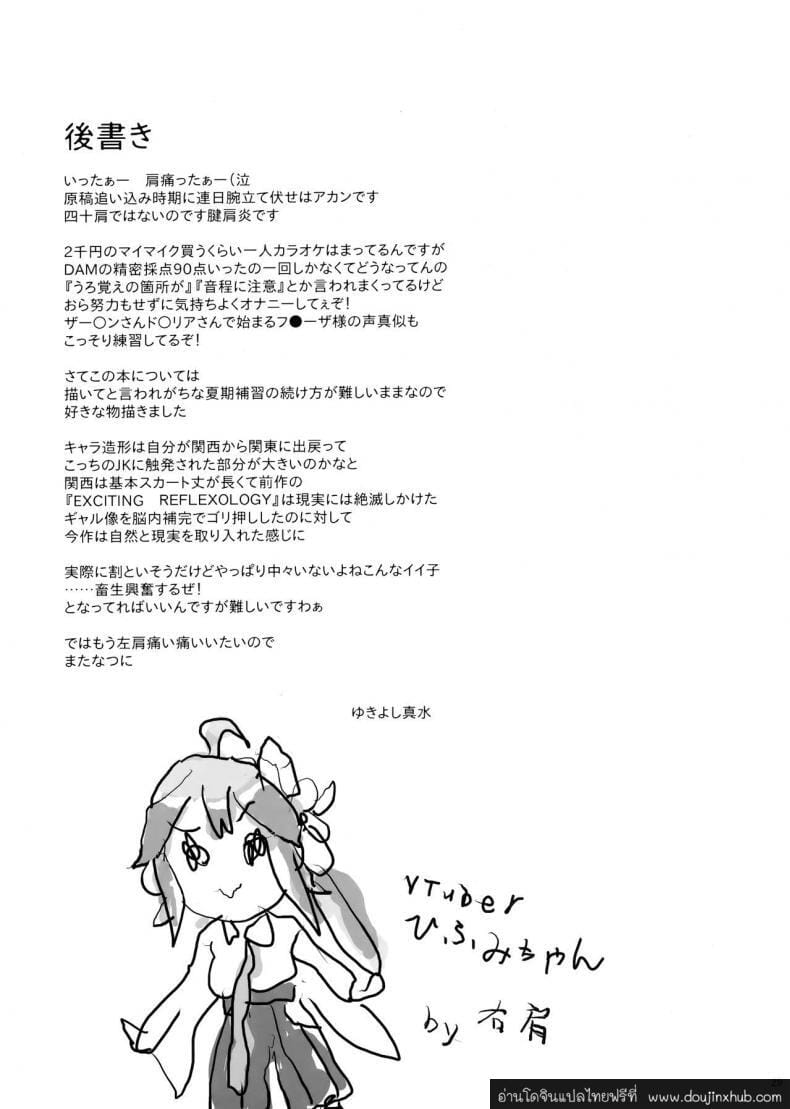 後書き
いったぁー　肩痛ったぁー(泣
原稿追い込み時期に連日腕立て伏せはアカンです
四十肩ではないのです腱肩炎です
2千円のマイマイク買うくらい一人カラオケはまってるんですが
DAMの精密採点90点いったの一回しかなくてどうなってんの
『うろ覚えの箇所が』『音程に注意』とか言われまくってるけど
おら努力もせずに気持ちよくオナニーしてぇぞ！
ザー〇ンさんド〇リアさんで始まるフ●ーザ様の声真似も
こっそり練習してるぞ！
さてこの本については
描いてと言われがちな夏期補習の続け方が難しいままなので
好きな物描きました
キャラ造形は自分が関西から関東に出戻って
こっちのJKに触発された部分が大きいのかなと
関西は基本スカート丈が長くて前作の
『EXCITING　REFLEXOLOGY』は現実には絶滅しかけた
ギャル像を脳内補完でゴリ押ししたのに対して
今作は自然と現実を取り入れた感じに
実際に割といそうだけどやっぱり中々いないよねこんなイイ子
……畜生興奮するぜ！
となってればいいんですが難しいですわぁ
ではもう左肩痛い痛いいたいので
またなつに
ゆきよし真水
VTuber
ひふみちゃん
by 右肩
20
อ่านโดจินแปลไทยฟรีที่ www.doujinxhub.com